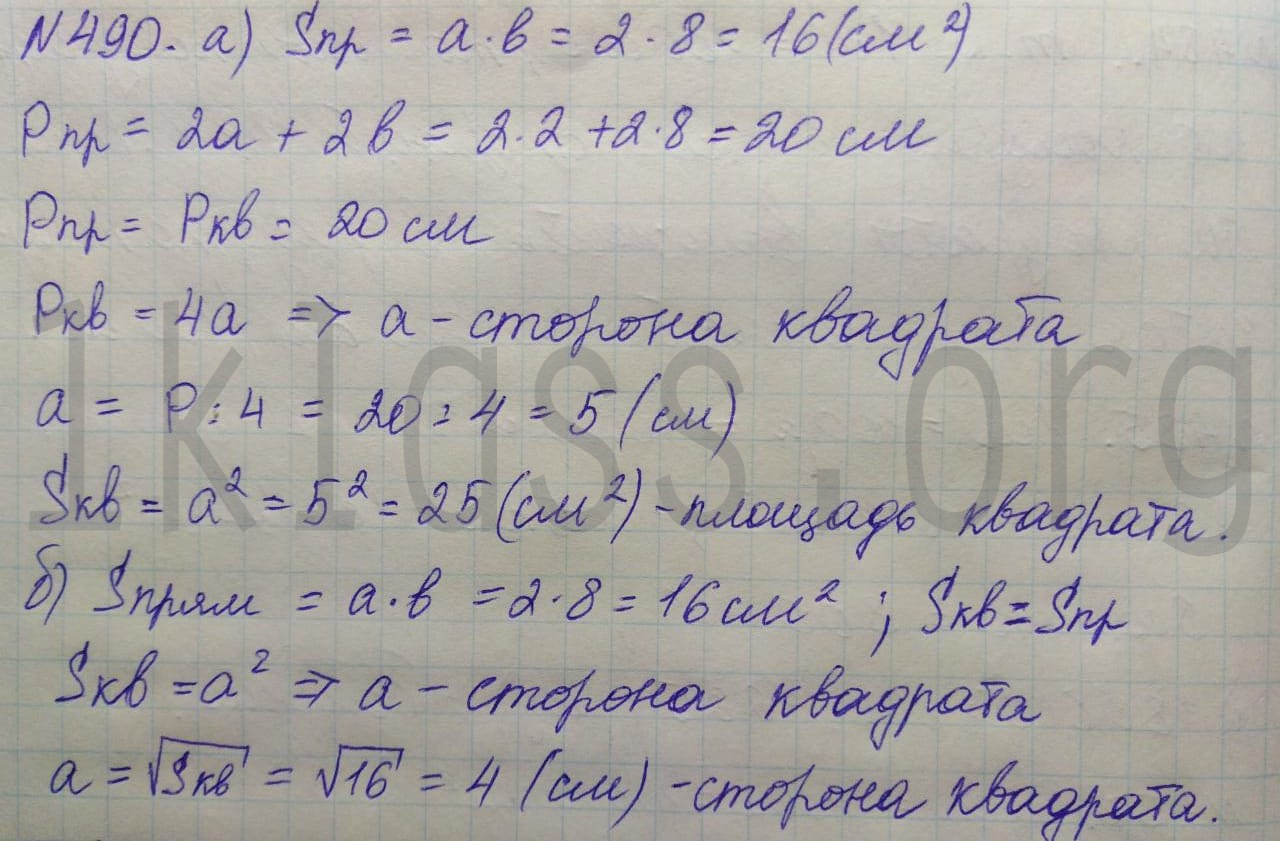 N490. а) Sпр = a·в = 2·8 = 16(см²)
Pпр = 2a + 2в = 2·2 + 2·8 = 20 см
Pпр = Pкв = 20 см
Pкв = 4a => a - сторона квадрата
a = P:4 = 20:4 = 5 (см)
Sкв = a² = 5² = 25(см²) - площадь квадрата.
б) Sпрям = a·в = 2·8 = 16 см² ; Sкв = Sпр
Sкв = a² => a - сторона квадрата
a = √Sкв = √16 = 4 (см) - сторона квадрата.
1klass.org